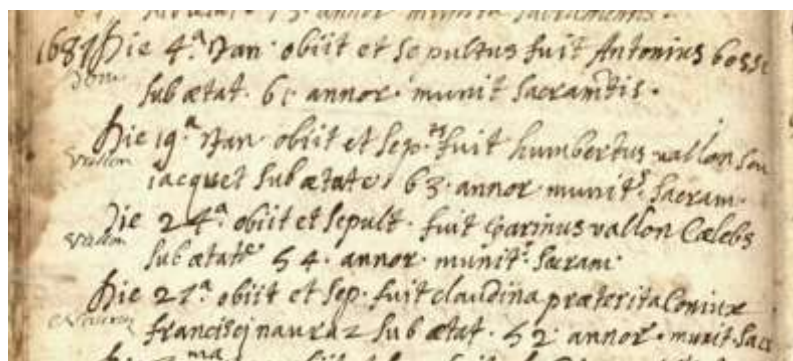 annor munit sacramentis.
1687 Die 4.a Jan. obiit et sepultus fuit Antonius bosse
sub ætat. 61 annor. munit sacramtis.
Die 19.a Jan. obiit et sep.ts fuit humbertus vallon seu
vallon
jacquet sub ætate 63. annor. munit.s sacram.
Die 24.a obiit et sepult. fuit garinus vallon Cælebs
vallon
sub ætate 54. annor. munit.s sacram.
Die 27.a obiit et sep. fuit claudina præterita Coniux
francisci nauraz sub ætat. 52. annor. munit. Sacr